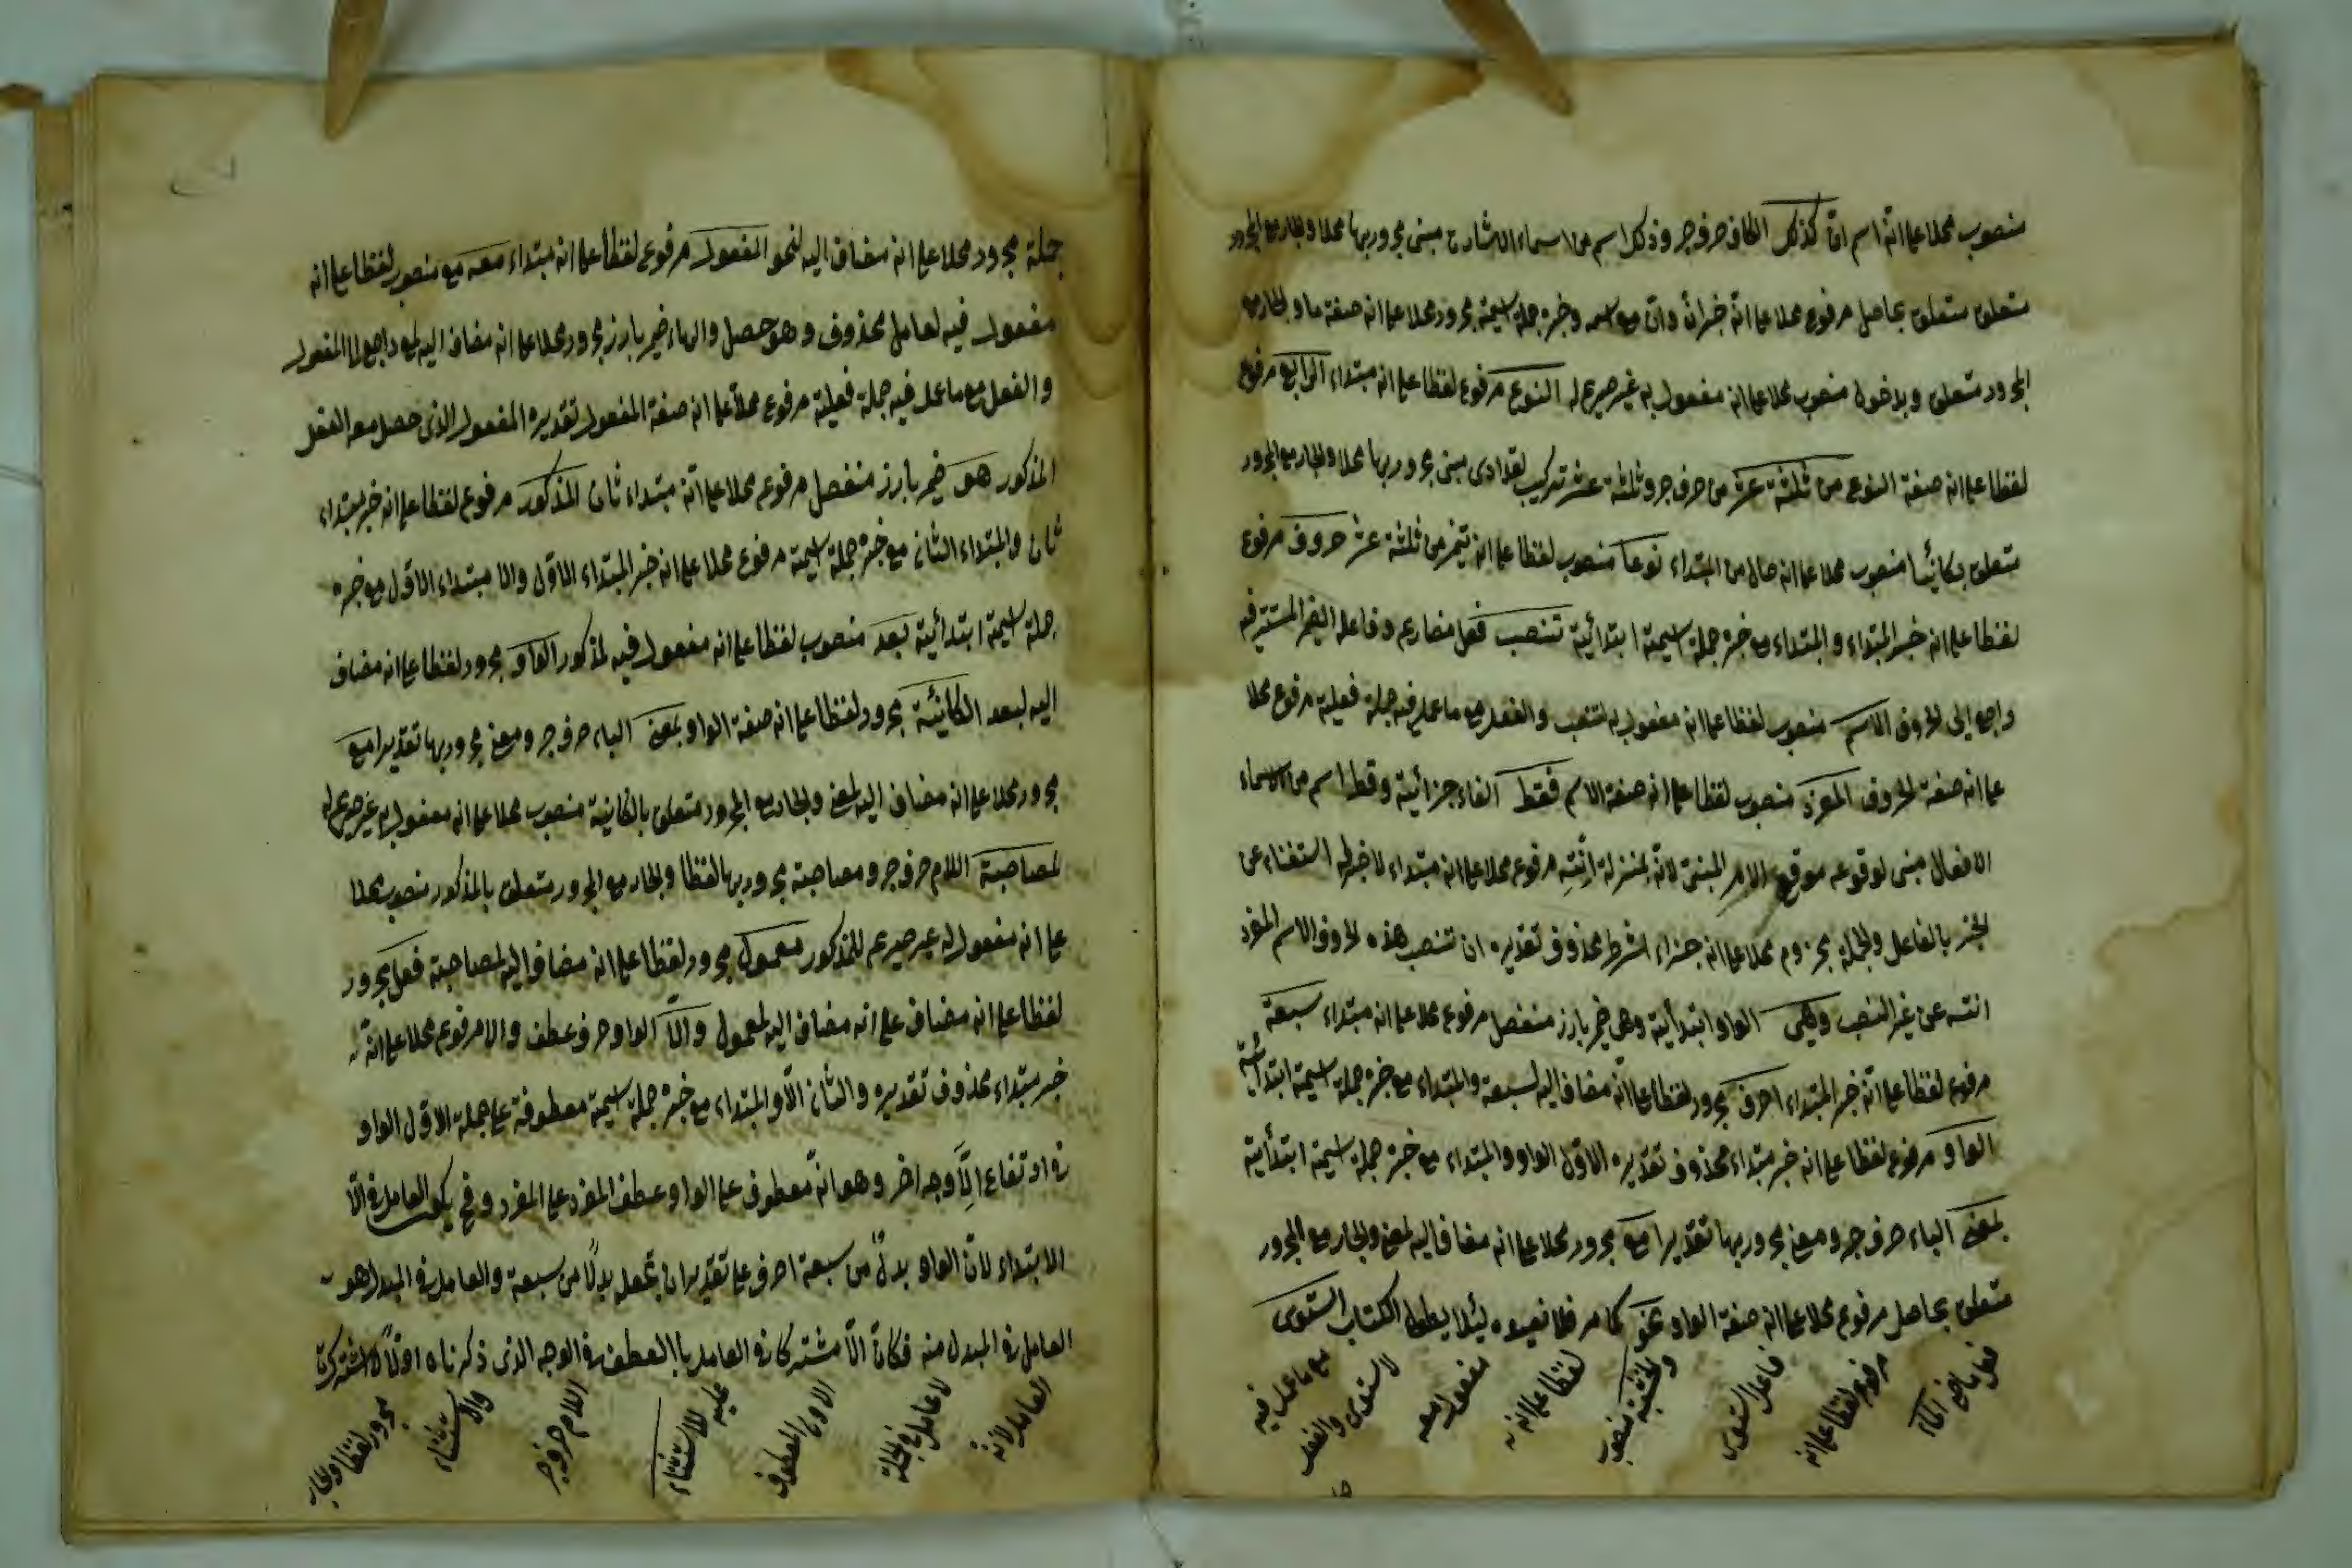 منصوب محلا على انّه اسم انّ كذلك الكاف حرف جر وذلك اسم من اسماء الاشارة مبنى مجرور بها محلا والجار مع المجرور
متعلق متعلق بحاصل مرفوع محلا على انّه خبر انّ وانّ مع اسمه وخبره جملة اسمية مجرور محلا على انه صفة ما والجار مع
المجرور متعلق وبدخول منصوب محلا على انه مفعول به غير صريح له النوع مرفوع لفظا على انه مبتداء الرابع مرفوع
لفظا على انه صفة النوع من ثلثة عشر من حرف جر وثلثة عشر تركيب تعدادى مبنى مجرور بها محلا والجار مع المجرور
متعلق بكائنا منصوب محلا على انه حال من المبتداء نوعا منصوب لفظا على انه تميز من ثلثة عشر حروف مرفوع
لفظا على انه خبر المبتداء والمبتداء مع خبره جملة اسمية ابتدائية تنصب فعل مضارع وفاعله الضمير المستتر فيه
راجع الى الحروف الاسم منصوب لفظا على انه مفعول به لتنصب والفعل مع ما عمل فيه جملة فعلية مرفوع محلا
على انه صفة الحروف المفرد منصوب لفظا على انه صفة الاسم فقط الفاء جزائية وقط اسم من اسماء
الافعال مبنى لوقوعه موقع الامر المبنى لانّه بمنزلة انته مرفوع محلا على انه مبتداء لا خبر له استغناء عن
الخبر بالفاعل والجملة مجزوم محلا على انه جزاء لشرط محذوف تقديره ان تنصب هذه الحروف الاسم المفرد
انته عن غير النصب وهى الواو ابتدائية وهى ضمير بارز منفصل مرفوع محلا على انه مبتداء سبعة
مرفوع لفظا على انّه خبر المبتداء احرف مجرور لفظا على انّه مضاف اليه لسبعة والمبتداء مع خبره جملة اسمية ابتدائية
الواو مرفوع لفظا على انه خبر مبتداء محذوف تقديره الاوّل الواو والمبتداء مع خبره جملة اسمية ابتدائية
بمعنى الباء حرف جر ومعنى مجرور بها تقديرا مع مجرور محلا على انه مضاف اليه لمعنى والجار مع المجرور
متعلق بحاصل مرفوع محلا على انه صفة الواو نحو كما مر فلا نعيده ليئلا يطول الكتاب استوى
فعل ماض الماء
مرفوع لفظا على انه
فاعل استوى
والخشبة منصوب
لفظا على انه
مفعول معه
لاستوى والفعل
مع ما عمل فيه
جملة مجرور محلا على انه مضاف اليه لنحو المفعول مرفوع لفظا على انه مبتداء معه مع منصوب لفظا على انه
مفعول فيه لعامل محذوف وهو حصل والهاء ضمير بارز مجرور محلا على انه مضاف اليه لمع راجع الى المفعول
والفعل مع ما عمل فيه جملة فعلية مرفوع محلا على انه صفة المفعول تقديره المفعول الذى حصل معه الفعل
المذكور هو ضمير بارز منفصل مرفوع محلا على انّه مبتداء ثان المذكور مرفوع لفظا على انه خبر مبتداء
ثان والمبتداء الثانى مع خبره جملة اسمية مرفوع محلا على انه خبر المبتداء الاوّل والا مبتداء الاوّل مع خبره
جملة اسمية ابتدائية بعد منصوب لفظا على انه مفعول فيه لمذكور الواو مجرور لفظا على انه مضاف
اليه لبعد الكائنة مجرور لفظا على انه صفة الواو بمعنى الباء حرف جر ومعنى مجرور بها تقديرا مع
مجرور محلا على انه مضاف اليه لمعنى والجار مع المجرور متعلق بالكائنة منصوب محلا على انه مفعول به غير صريح له
لمصاحبة اللام حرف جر ومصاحبة مجرور بها لفظا والجار مع المجرور متعلق بالمذكور منصوب محلا
على انه مفعول له غير صريح للمذكور معمول مجرور لفظا على انه مضاف اليه لمصاحبة فعل مجرور
لفظا على انه مضاف على انه مضاف اليه لمعمول والّا الواو حرف عطف والا مرفوع محلا على انّه
خبر مبتداء محذوف تقديره والثان الّا والمبتداء مع خبره جملة اسمية معطوفة على جملة الاوّل الواو
فى ارتفاع الّا وجه اخر وهو انّه معطوف على الواو عطف المفرد على المفرد وفى يكون العامل فى الّا
الابتداء لانّ الواو بدل من سبعة احرف على تقدير ان تجعله بدلًا من سبعة والعامل فى المبدل هو
العامل فى المبدل منه فكان الّا مشتركا فى العامل بالعطف فى الوجه الذى ذكرناه اولًا لا اشتراك
العامل لانّه
لا عامل فى الجملة
الاولى المعطوف
عليه للاستثناء
اللام حرف جر
والاستثناء
مجرور لفظا والجار